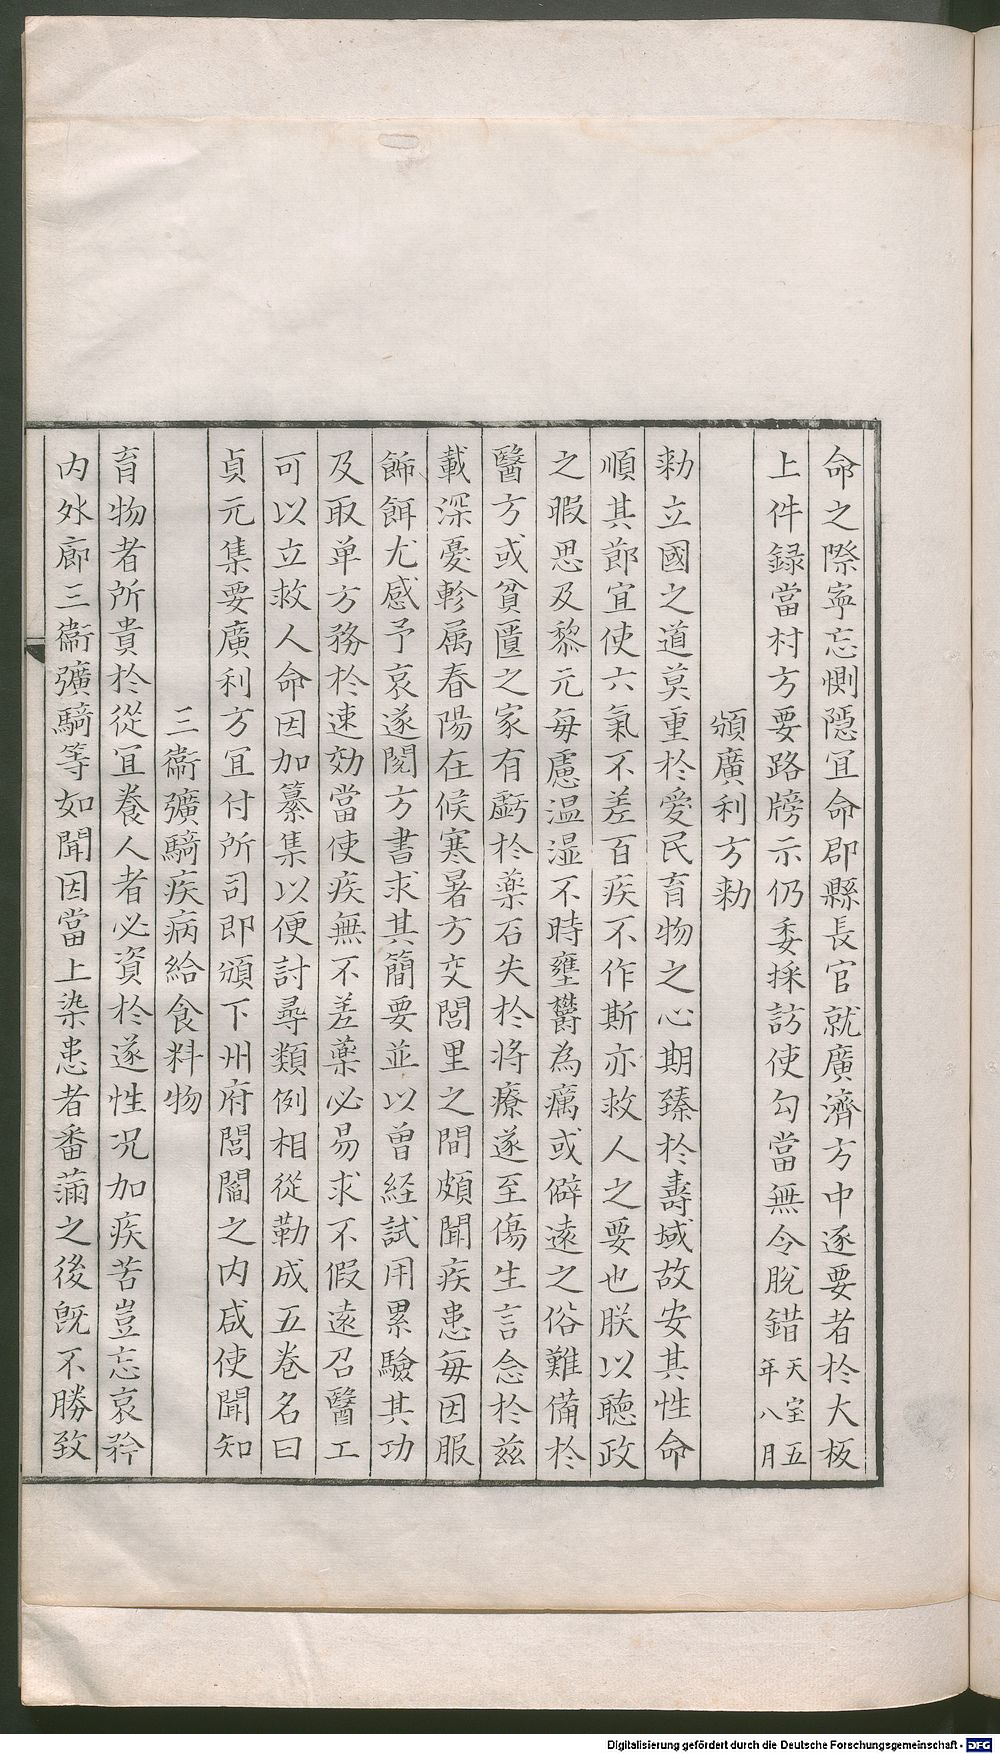 命之際寧忘惻隱宜命郡縣長官就廣濟方中逐要者於大板
上件録當村方要路牓示仍委採訪使勾當無令脫錯天宝五年八月
頒廣利方勅
勅立國之道莫重於愛民育物之心期臻於壽域故安其性命
順其莭宜使六氣不差百疾不作斯亦救人之要也朕以聽政
之暇思及黎元每慮温湿不時壅欝為癘或僻遠之俗難備於
醫方或貧匱之家有虧於藥石失於将療遂至傷生言念於兹
載深憂軫属春陽在候寒暑方交閭里之間頗聞疾患每因服
餙餌尤感予哀遂閱方書求其簡要並以曽経試用累驗其功
及取单方務於速効當使疾無不差藥必易求不假遠召醫工
可以立救人命因加纂集以便討尋類例相從勒成五巻名曰
貞元集要廣利方宜付所司即頒下州府閭閻之内咸使聞知
三衛彍騎疾病給食料物
育物者所貴於從宜養人者必資於遂性况加疾苦豈忘哀矜
内外廊三衛彍騎等如聞因當上染患者番滿之後既不勝致